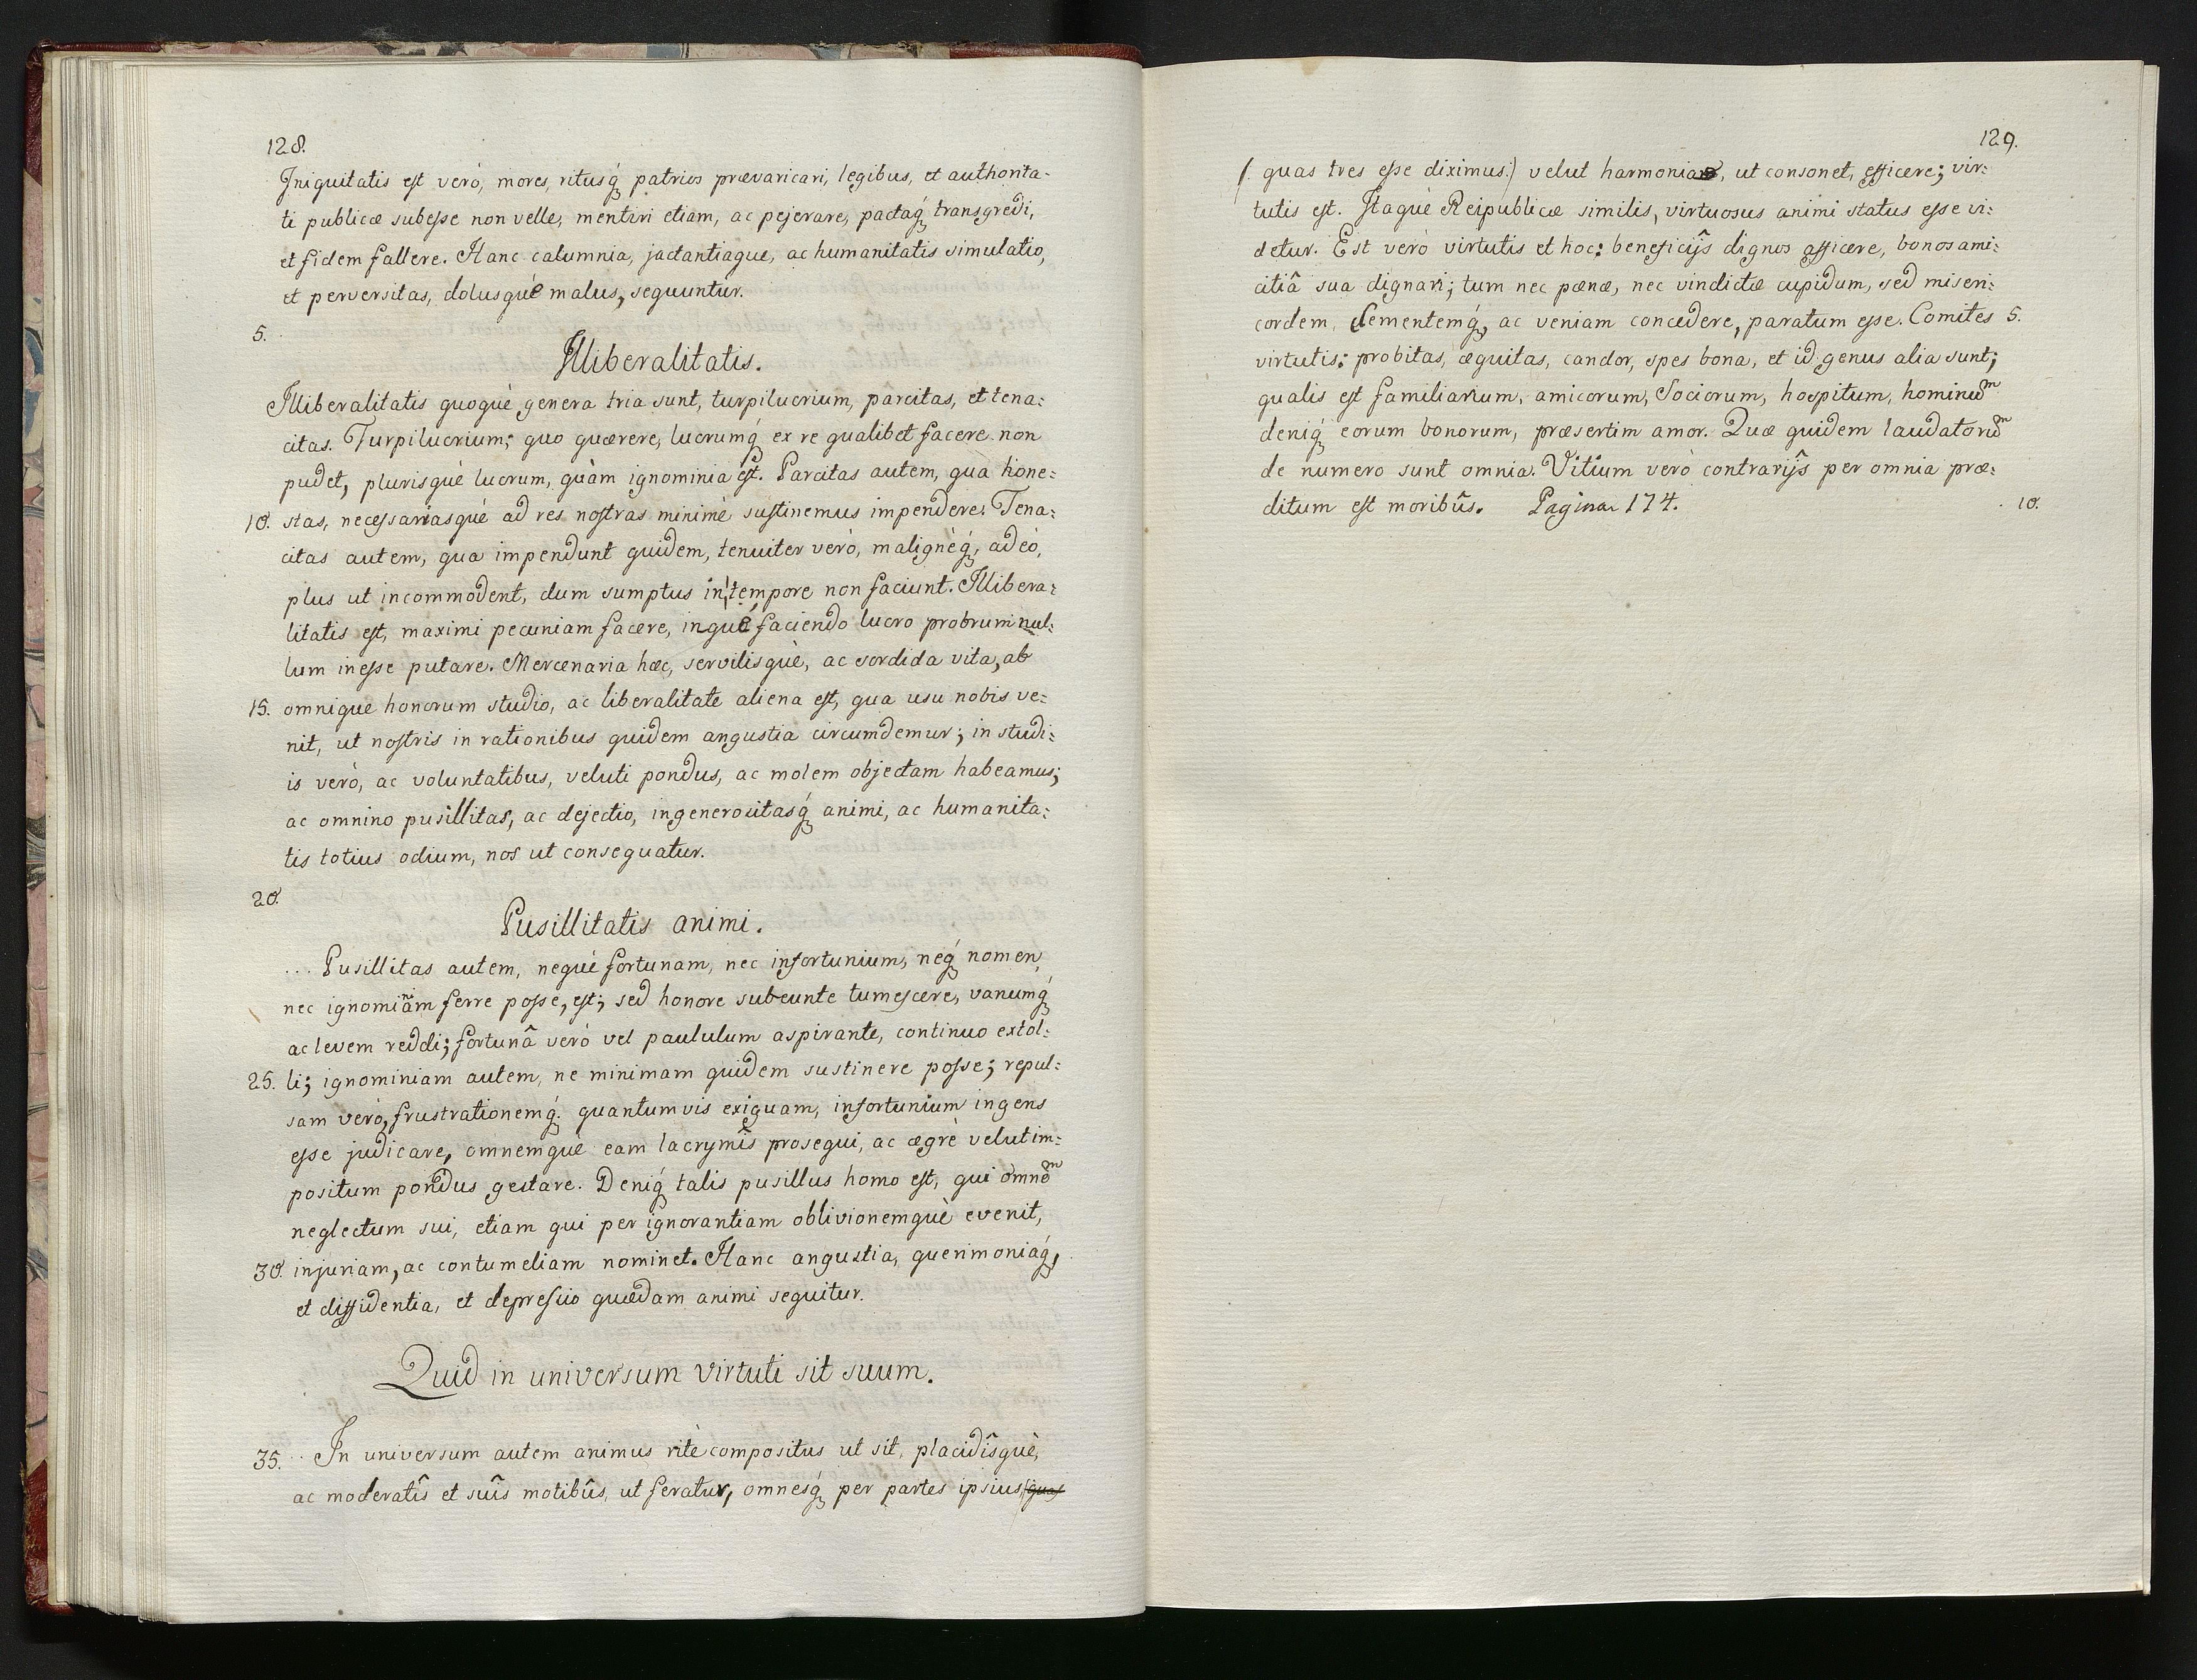 128.
Iniquitatis est verò, mores, ritusq́ꝫ patrios prævaricari, legibus, et authorita-
ti publicæ subeſse non velle, mentiri etiam, ac pejerare, pactaq́ꝫ transgredi,
et fidem fallere. Hanc calumnia, jactantiaque, ac humanitatis simulatio,
et perversitas, dolusquè malus, sequuntur.
5.
Illiberalitatis.
Illiberalitatis quoquè genera tria sunt, turpilucrium, parcitas, et tena:
citas. Turpilucrium; quo quærere, lucrumq́ꝫ ex re qualibet facere non
pudet, plurisquè lucrum, quàm ignominia est. Parcitas autem, qua hone:
10. stas, necessariasquè ad res nostras minimè sustinemus impendere. Tena:
citas autem, qua impendunt quidem, tenuiter verò, malignèq́ꝫ, adeò,
plus ut incommodent, dum sumptus in tempore non faciunt. Illibera:
litatis est, maximi pecuniam facere, inquè faciendo lucro probrum nul:
lum ineſse putare. Mercenaria hæc, servilisquè, ac sordida vita, ab
15. omnique honorum studio, ac liberalitate aliena est, qua usu nobis ve:
nit, ut nostris in rationibus quidem angustia circumdemur; in studi:
is verò, ac voluntatibus, veluti pondus, ac molem objectam habeamus;
ac omnino pusillitas, ac dejectio, ingenerositasq́ꝫ animi, ac humanita:
tis totius odium, nos ut consequatur.
20.
Pusillitatis animi.
... Pusillitas autem, nequè fortunam, nec infortunium, neq́ꝫ nomen,
nec ignomiãm ferre poſse, est; sed honore subeunte tumescere, vanumq́ꝫ
ac levem reddi; fortunâ verò vel paululum aspirante, continuo extol:
25. li; ignominiam autem, ne minimam quidem sustinere poſse; repul:
sam verò, frustrationemq́ꝫ quantumvis exiguam, infortunium ingens
eſse judicare, omnemquè eam lacrymîs prosequi, ac ægrè velut im:
positum pondus gestare. Deniq́ꝫ talis pusillus homo est, qui omnẽᵐ
neglectum sui, etiam qui per ignorantiam oblivionemquè evenit,
30. injuriam, ac contumeliam nominet. Hanc angustia, querimoniaq́ꝫ,
et diffidentia, et depreſsio quædam animi sequitur.
Quid in universum virtuti sit suum.
35. In universum autem animus ritè compositus ut sit, placidîsquè,
ac moderatîs et suîs motibûs, ut feratur, omnesq́ꝫ per partes ipsius (quas
129.
(. quas tres eſse diximus.) velut harmonia, ut consonet, efficere; vir:
tutis est. Itaquè Reipublicæ similis, virtuosus animi status eſse vi:
detur. Est verò virtutis et hoc: beneficijs dignos afficere, bonos ami:
citiâ sua dignari; tum nec pœnæ, nec vindictæ cupidum, sed miseri:
cordem, clementemq́ꝫ, ac veniam concedere, paratum eſse. Comites 5.
virtutis: probitas, æquitas, candor, spes bona, et id genus alia sunt;
qualis est familiarium, amicorum, Sociorum, hospitum, hominũᵐ
deniq́ꝫ eorum bonorum, præsertim amor. Quæ quidem laudatorũᵐ
de numero sunt omnia. Vitium verò contrarijs per omnia præ:
ditum est moribûs. Pagina 174. 10.